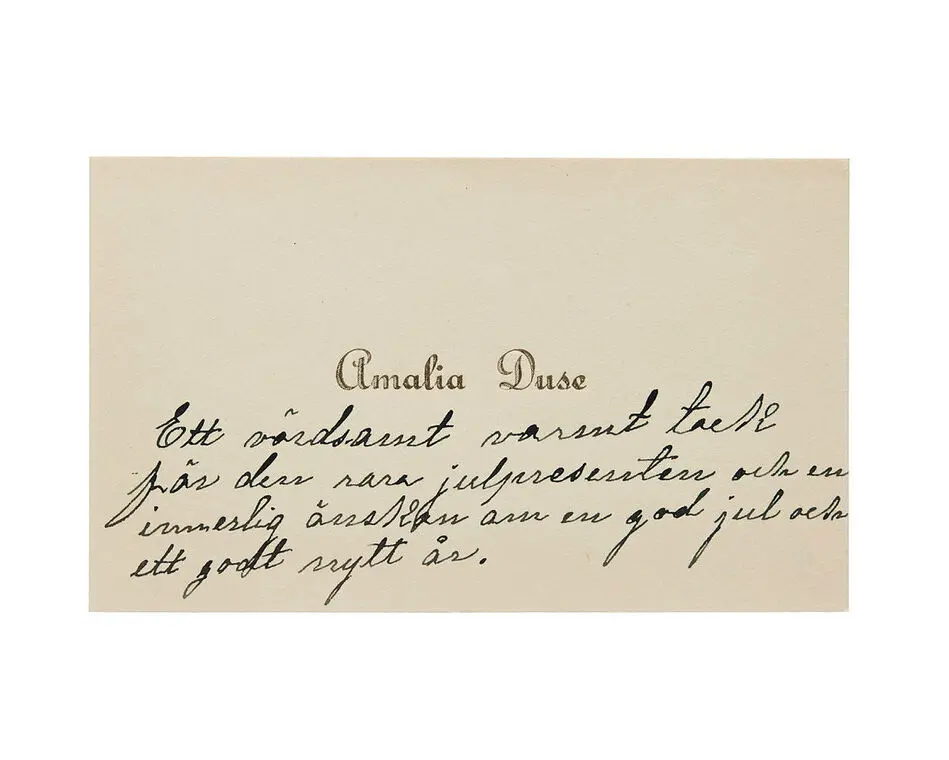 Amalia Duse
Ett vördsamt varmt tack
för den rara julpresenten och en
innerlig önskan om en god jul och
ett godt nytt år.